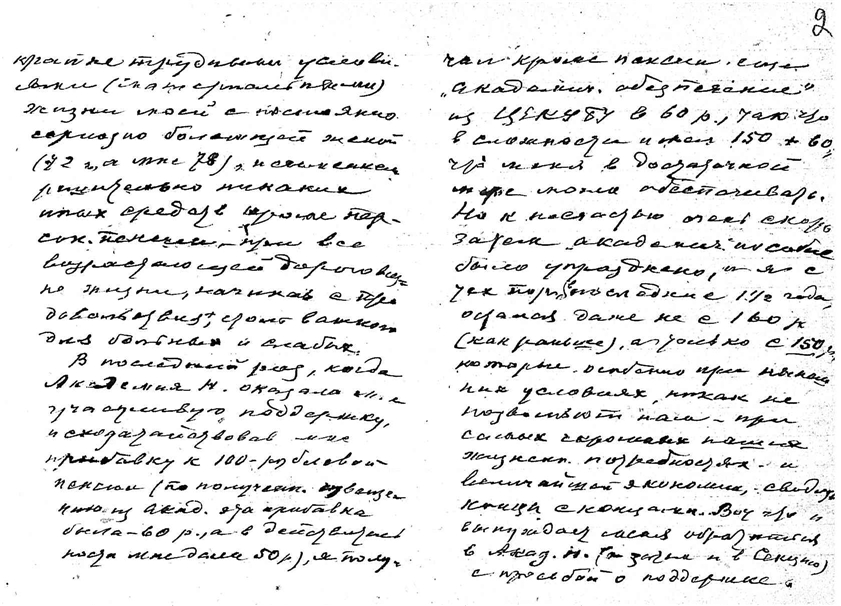 2
крайне трудными услови-
ями (материальными)
жизни моей с постоянно
серьозно болеющей женой
(72 г., а мне 78), и
решительно никаких
иных средств кроме пер-
сон. пенсии, при все
возрастающей дороговиз-
не жизни, начиная с про
довольствия, столь важного
для больных и слабых.
В последний раз, когда
Академия Н. оказала мне
участливую поддержку,
исходатайствовав мне
прибавку к 100-рублевой
пенсии (по получен. извеще-
нию из Акад. эта прибавка
была - 60 р., а в действитель
ности мне дали 50 р.), я полу-
чал кроме пенсии еще
"академич. обезпечение"
из ЦЕКУБУ в 60 р., так что
в сложности имел 150 + 60,
что меня в достаточной
мере могло обеспечивать.
Но к несчастью очень скоро
затем академич. пособие
было упразднено, и я с
тех пор, в последние 1 1/2 года,
остался даже не с 160 р
(как раньше), а только с 150 р,
которые особенно при нынеш
них условиях, никак не
позволяют нам - при
самых скромных наших
жизнен. потребностях и
величайшей экономии, сводить
концы с концами. Вот что и
вынуждает меня обратиться
в Акад. Н. (а затем и в Секцию)
с просьбой о поддержке.